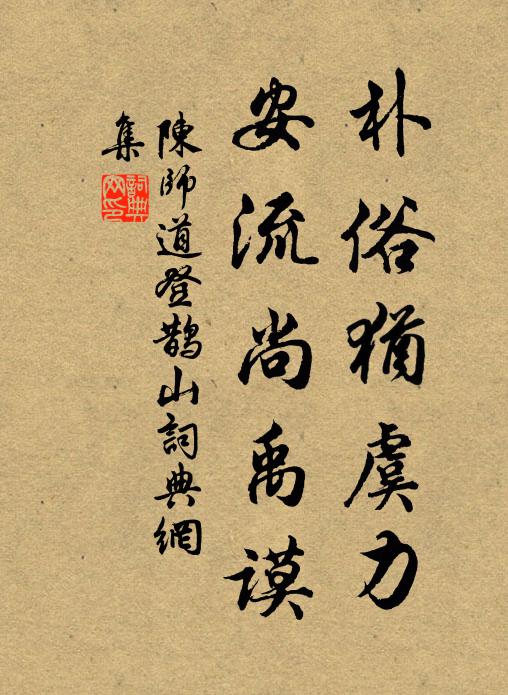 朴俗猶虞力
安流尚禹謨
陳師道登鵲山詞典網
集
詞典網印